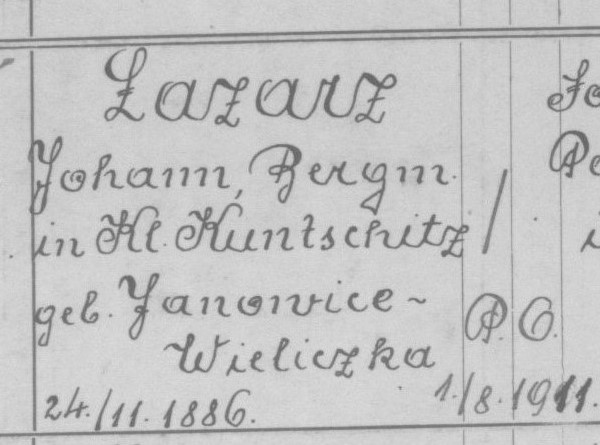 Lazarz
Johann, Bergm.
in Kl. Kuntschitz /
geb. Janowice-
Wieliczka
P. C.
24./11. 1886.
1./8. 1911.
Jo
Pe
i